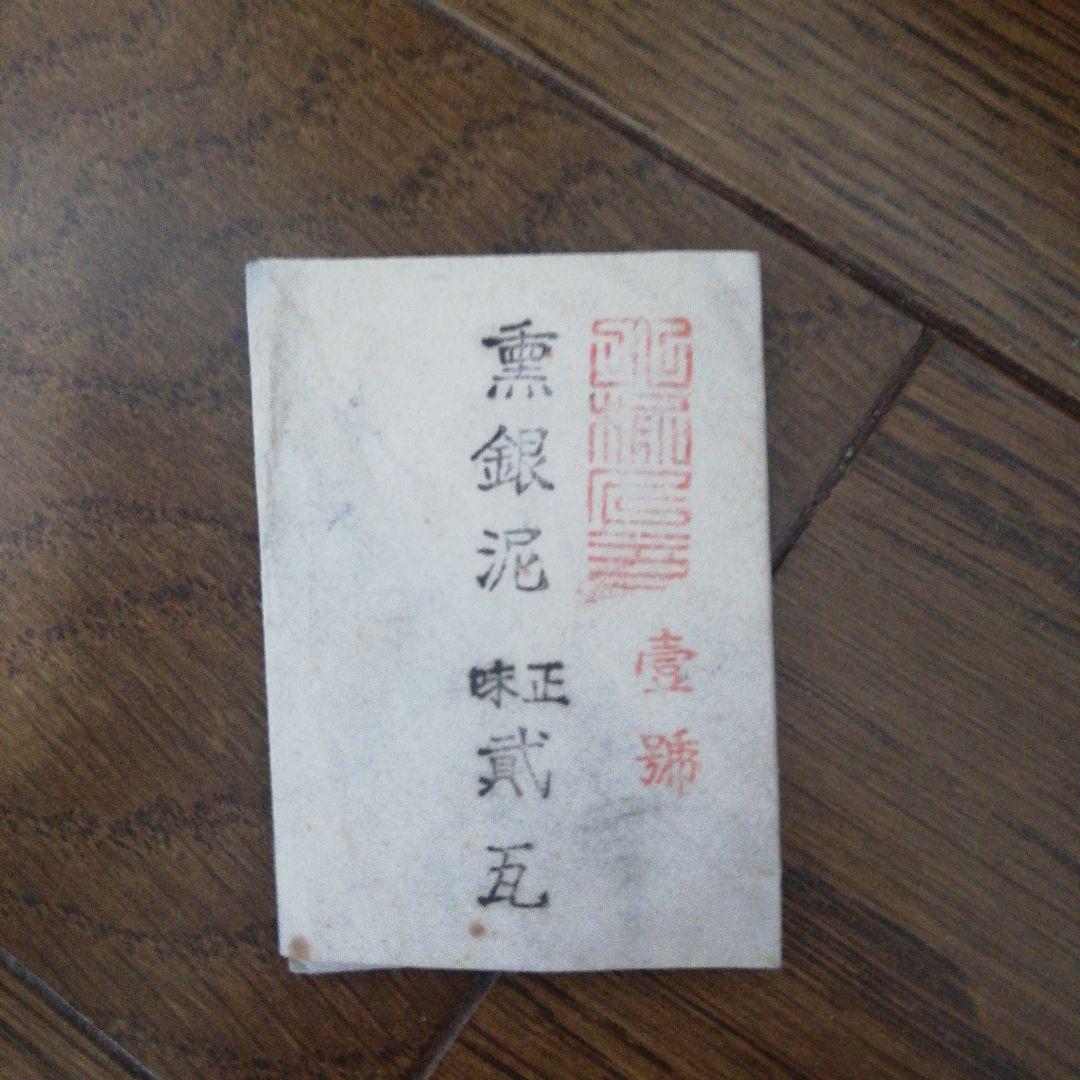 壹號
熏銀泥 正味 貳瓦